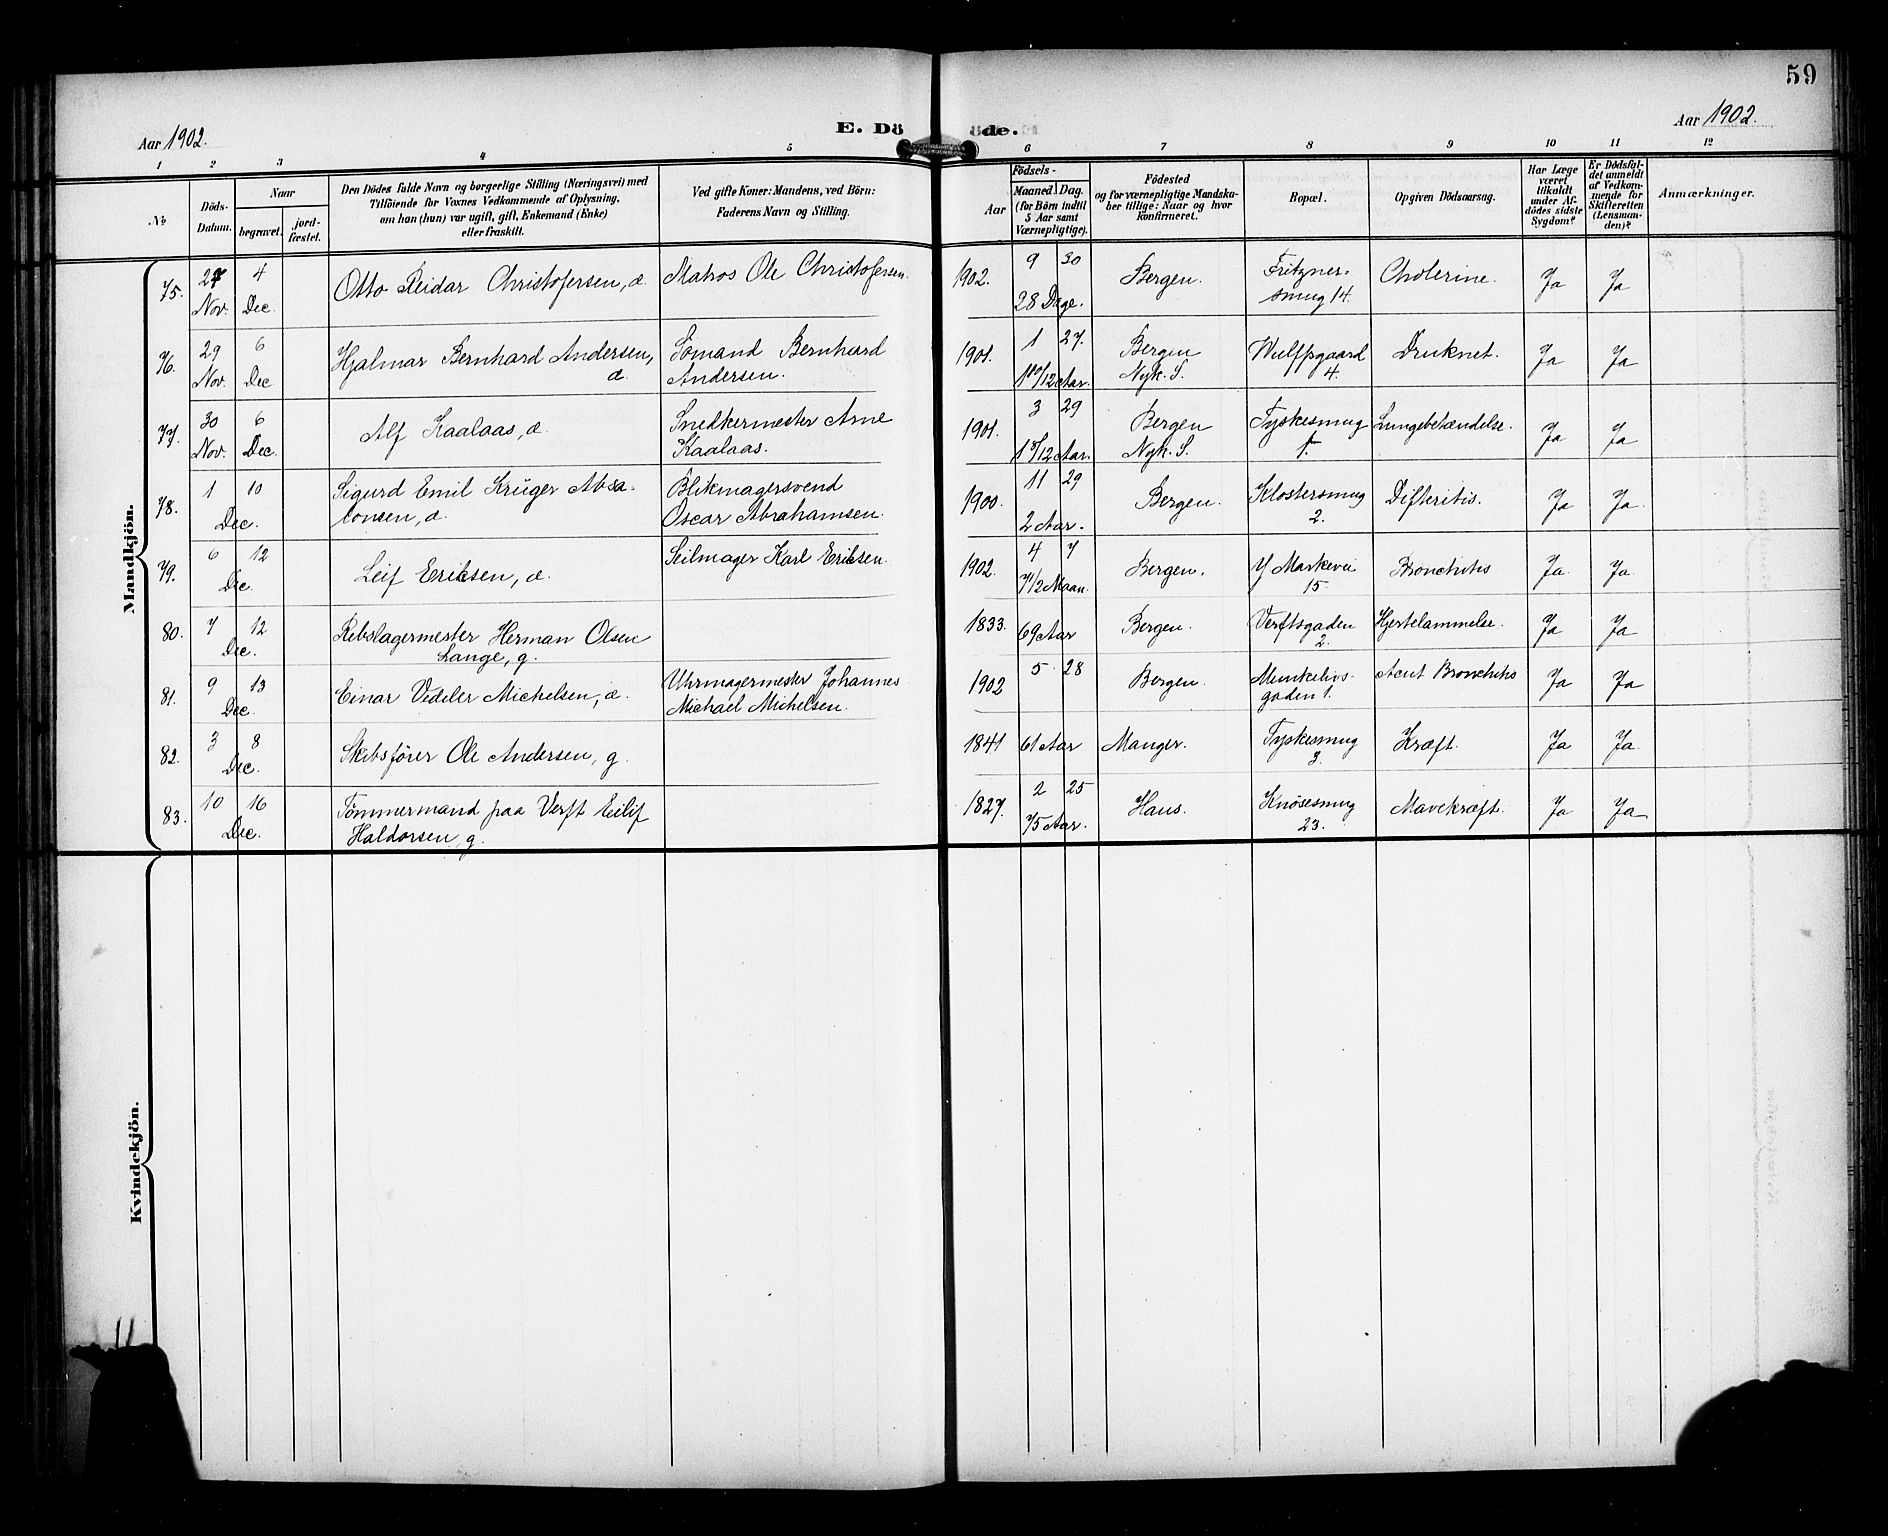 59
Aar 1902.
E. Döde.
Aar 1902.
1 2 3 4 5 6 7 8 9 10 11 12
№
Döds-
Datum.
Naar
begravet.
jord-
fæstet.
Den Dödes fulde Navn og borgerlige Stilling (Næringsvei) med
Tilföiende for Voxnes Vedkommende af Oplysning,
om han (hun) var ugift, gift, Enkemand (Enke)
eller fraskilt.
Ved gifte Koner: Mandens, ved Börn:
Faderens Navn og Stilling.
Födsels-
Aar
Maaned. Dag.
(for Börn indtil
5 Aar samt
Værnepligtige).
Födested
og for værnepligtige Mandska-
ber tillige: Naar og hvor
konfirmeret.
Bopæl.
Opgiven Dödsaarsag.
Har Læge
været
tilkaldt
under Af-
dödes sidste
Sygdom?
Er Dödsfal-
det anmeldt
af Vedkom-
mende for
Skifteretten
(Lensman-
den)?
Anmærkninger.
Mandkjön.
75. 27 Nov. 4 Dec. Otto Reidar Christofersen, æ. Matros Ole Christofersen. 1902. 9 30
28 Dage. Bergen. Fritzners-
smug 14. Cholerine. Ja Ja
76. 29 Nov. 6 Dec Hjalmar Bernhard Andersen,
æ. Sömand Bernhard
Andersen. 1901. 1 27.
1 10/12 Aar. Bergen
Nyk. S. Wulffsgaard
4. Druknet. Ja Ja
77. 30 Nov. 6 Dec. Alf Kaalaas, æ. Snedkermester Arne
Kaalaas. 1901. 3 29
1 8/12 Aar. Bergen
Nyk. S. Tyskesmug
1. Lungebetændelse. Ja Ja
78. 1 10 Dec. Sigurd Emil Krüger Absa-
lonsen, æ. Blikmagersvend
Oscar Abrahamsen. 1900. 11 29
2 Aar. Bergen. Klostersmug
2. Difteritis. Ja Ja.
79. 6 12 Dec. Leif Ericsen, æ. Seilmager Karl Ericsen. 1902. 4 7
7 1/2 Maan. Bergen. Y Markevei
15 Bronchitis Ja. Ja.
80. 7 12 Dec. Rebslagermester Herman Olsen
Lange, g. 1833. 69 Aar Bergen. Verftsgaden
2. Hjertelammelse. Ja Ja
81. 9 13 Dec. Einar Videler Michelsen, æ. Uhrmagermester Johannes
Michael Michelsen. 1902 5 28 Bergen. Munkelivs-
gaden 1. Acut Bronchitis Ja Ja
82. 3 8 Dec. Skibsförer Ole Andersen, g. 1841 61 Aar Manger. Tyskesmug
3. Kræft. Ja Ja.
83. 10 16 Dec. Tömmermand paa Verft Eilif
Haldorsen, g. 1827. 2 25
75 Aar. Haus. Knösesmug
23. Mavekræft. Ja Ja
Kvindekjön.